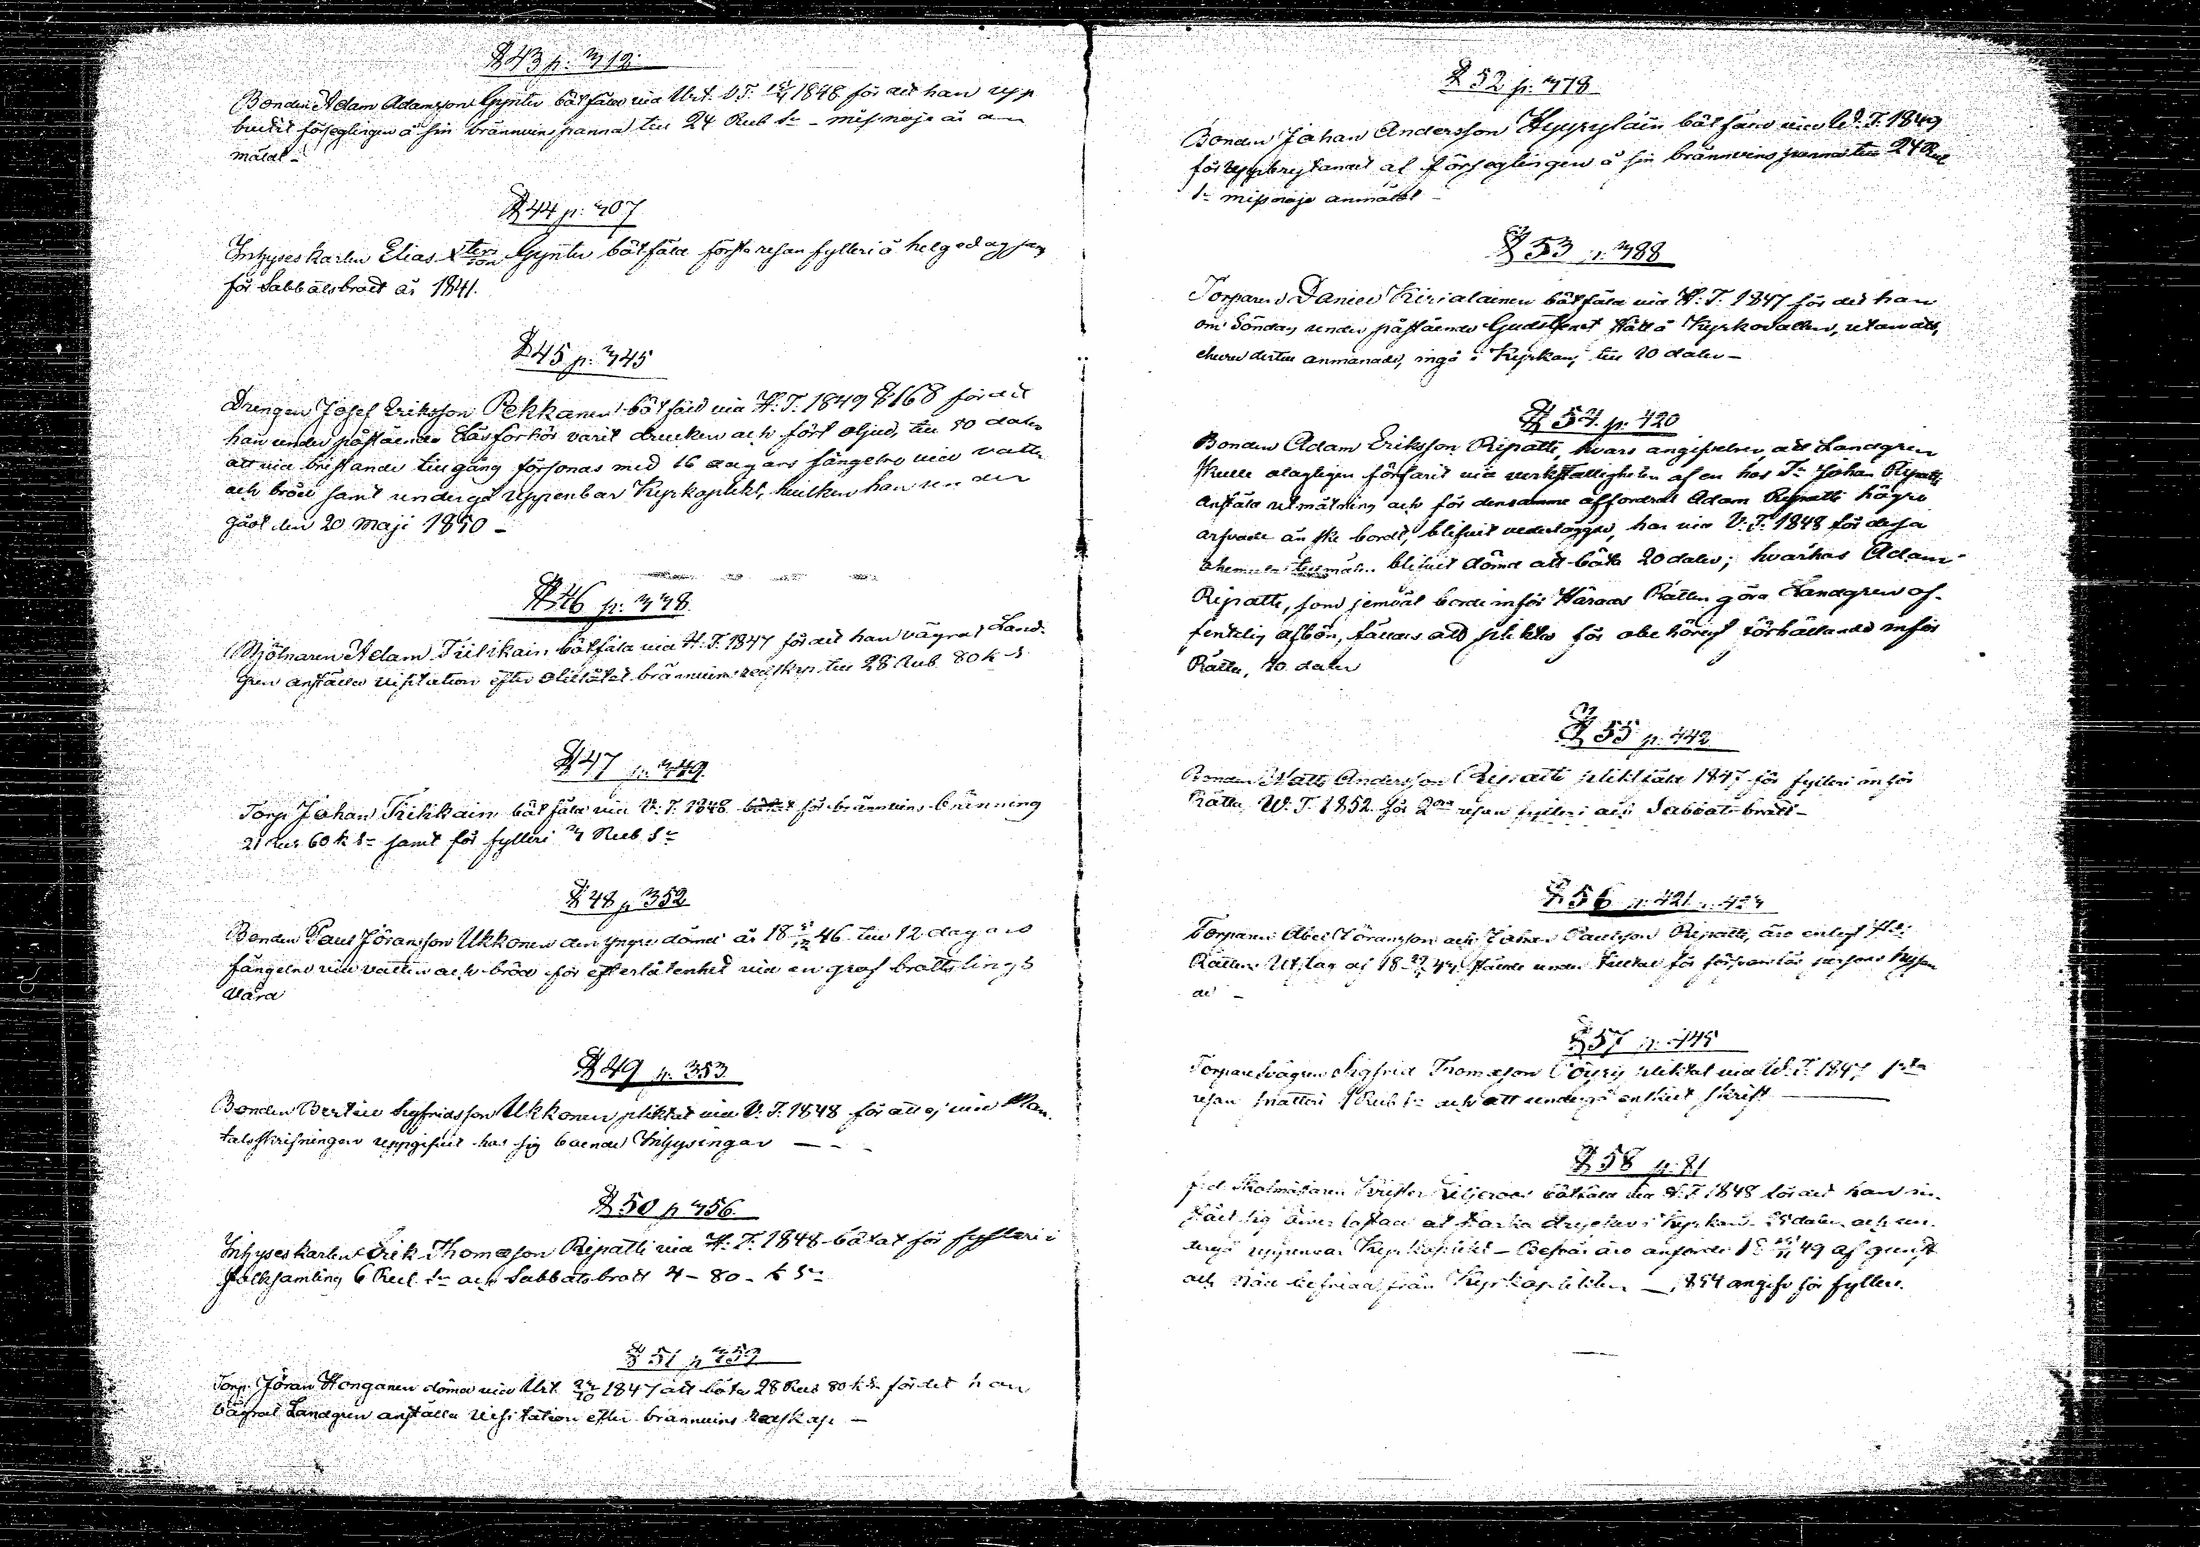 § 43 p: 312.
Bonden Adam Adamsson Gyntu bötfäld vid Urt. V.T. 1848 för det han upp
brutit förseglingen å sin brännvinspanna till 24 Rub Sr - missnöje är an
mäldt -
§ 44 p: 307
Inhyseskarlen Elias Gyntu bötfäld första resan fylleri å helgedag sam
för Sabbatsbrott år 1841.
§ 45 p: 345
Drengen Josef Eriksson Pekkanen bötfäld vid H.T. 1849 § 168 för det
han under påstående Läsförhör varit drucken och fört oljud, till 10 daler
att vid bristande tillgång försonas med 16 dagars fängelse vid vatten
och bröd samt undergå uppenbar Kyrkoplikt, hvilken han under
gådt den 20 Maji 1850 -
§ 46 p: 348
Mjölnaren Adam Tiilikain bötfäld vid H.T. 1847 för det han vägrat Land-
gren anställa visitation efter olietåtet brännvins redskap till 28 Rub 80 k S
§ 47 p: 349
Torp Johan Tiihkain bötfäld vid V.T. 1848 för brännvins bränning
21 Rub 60 k Sr samt för fylleri 3 Rub Sr
§ 48 p 352
Bonden Paul Jöransson Ukkonen den yngre dömd år 18 46 till 12 dagars
fängelse vid vatten och bröd för efterlåtenhet vid en graf brottslings
vård
§ 49 p. 353
Bonden Bertill Sigfridsson Ukkonen pliktat vid V.T. 1848 för att ej vid Man-
talsskrifningen uppgifvit hos sig boende Inhysingar - - -
§ 50 p 356
Inhyseskarlen Erik Thomasson Ripatti vid H.T. 1848 bötat för fylleri i
folksamling 6 Rub. Sr och Sabbatsbrott 4 - 80 - k Sr
§ 51 p 359
Torp. Jöran Honganen dömd vid Urt. 1847 att böta 28 Rub 80 k Sr för det han
vägrat Landgren anställa visitation efter brännvins Redskap -
§ 52 p. 378
Bonden Johan Andersson Hyyryläin bötfäld vid W.T. 1849
för uppbrytandet af förseglingen å sin brännvinspanna till 24 Rub
Sr missnöje anmäldt -
§ 53 p. 388
Torparen Daniel Kirialainen bötfäld vid H.T. 1847 för det han
om Söndag under påstående Gudstjenst stått å Kyrkovallen, utan att,
ehuru dertill anmanad, ingå i Kyrkan, till 10 daler -
§ 54 p. 420
Bonden Adam Eriksson Ripatti, hvars angifvelse, att Landgren
skulle olagligen förfarit vid verkställigheten af en hos Johan Ripatti
anstäld utmätning och för densamme affordrat Adam Ripatti högre
arfvode än ske bordt, blifvit vederlagd, har vid V.T. 1848 för dessa
blifvit dömd att böta 20 daler; hvarhos Adam
Ripatti, som jemväl borde inför Härads Rätten göra Landgren of-
fentlig afbön, fälldes att plikta för obehörigt förhållande inför
Rätten, 10 daler
§ 55 p. 442
Bonden Matts Andersson Ripatti pliktfäld 1847 för fylleri inför
Rätten W.T. 1852 för 2dra resan fylleri och Sabbatsbrott -
§ 56 p. 421
Torparen Abel Jöransson och Johan Paulsson Ripatti, äro enligt Hds
Rättens Utslag af 18 47. stående under tilltal för försvarslös persons hysan
de -
§ 57 p. 445
Torparesvågren Sigfrid Thomasson Pöyry pliktat vid W.T. 1847 1sta
resan snatteri Rub Sr och att undergå enskilt skrift
§ 58 p. 81
f.d. Skolmästaren bötfäld vid H.T 1848 för det han in-
sig af starka drycker i Kyrkan 25 daler och un-
dergå uppenbar Kyrkoplikt - Besvär äro anförde 49 af gunst
och nåd befriad från Kyrkoplikten - 1854 angifv för fylleri.